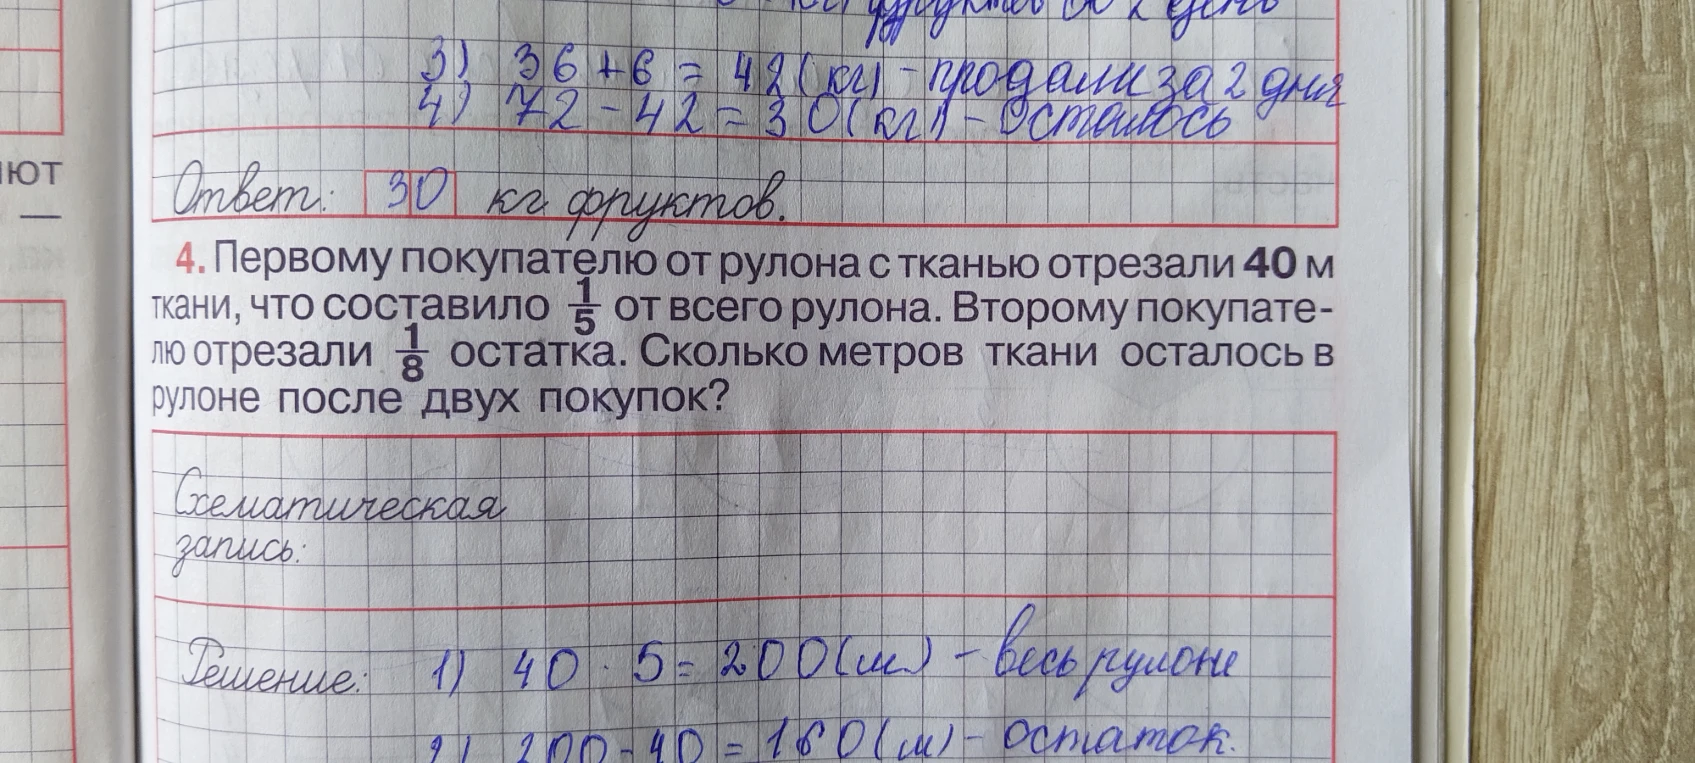 кг фруктов во 2 день
3) 36 + 6 = 42 (кг) - продали за 2 дня
4) 72 - 42 = 30 (кг) - осталось
ют
Ответ: 30 кг фруктов.
—
4. Первому покупателю от рулона с тканью отрезали 40 м
ткани, что составило 1/5 от всего рулона. Второму покупате-
лю отрезали 1/8 остатка. Сколько метров ткани осталось в
рулоне после двух покупок?
Схематическая
запись:
Решение: 1) 40 · 5 = 200 (м) - весь рулоне
2) 200 - 40 = 160 (м) - остаток.